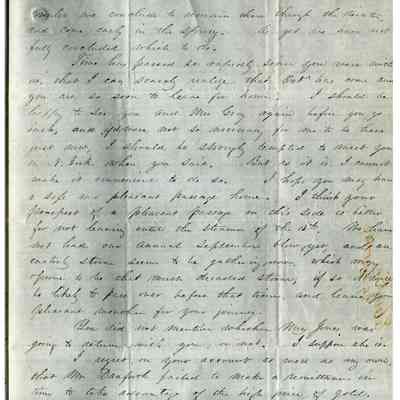 we conclude to remain here through the winter
and come early in the spring. As yet we have not
fully concluded which to do.
Time has passed so rapidly since you were with
us, that I can scarcely realize that Oct has come and
you are so soon to leave for home. I should be
happy to see you and Mrs Gray again before you go
and were not so necessary for me to be here
just now, I should be strongly tempted to meet you
in N. York when you sail. But as it is I cannot
make it convenient to do so. I hope you may have
a safe and pleasant passage home. I think your
prospect of a pleasant passage on this side is better
for not leaving until the steamer of the 15th. We have
not had our annual September blow, yet, and an
easterly storm seems to be gathering now, which may
prove to be that much dreaded storm, if so
be likely to pass over before that time, and leave you
pleasant weather for your journey.
You did not mention whether Mrs Jones was
going to return with you, or not. I suppose she is.
I regret on your account as well as my own,
that Mr. Danforth failed to make a remittance in
time to take advantage of the high price of gold.